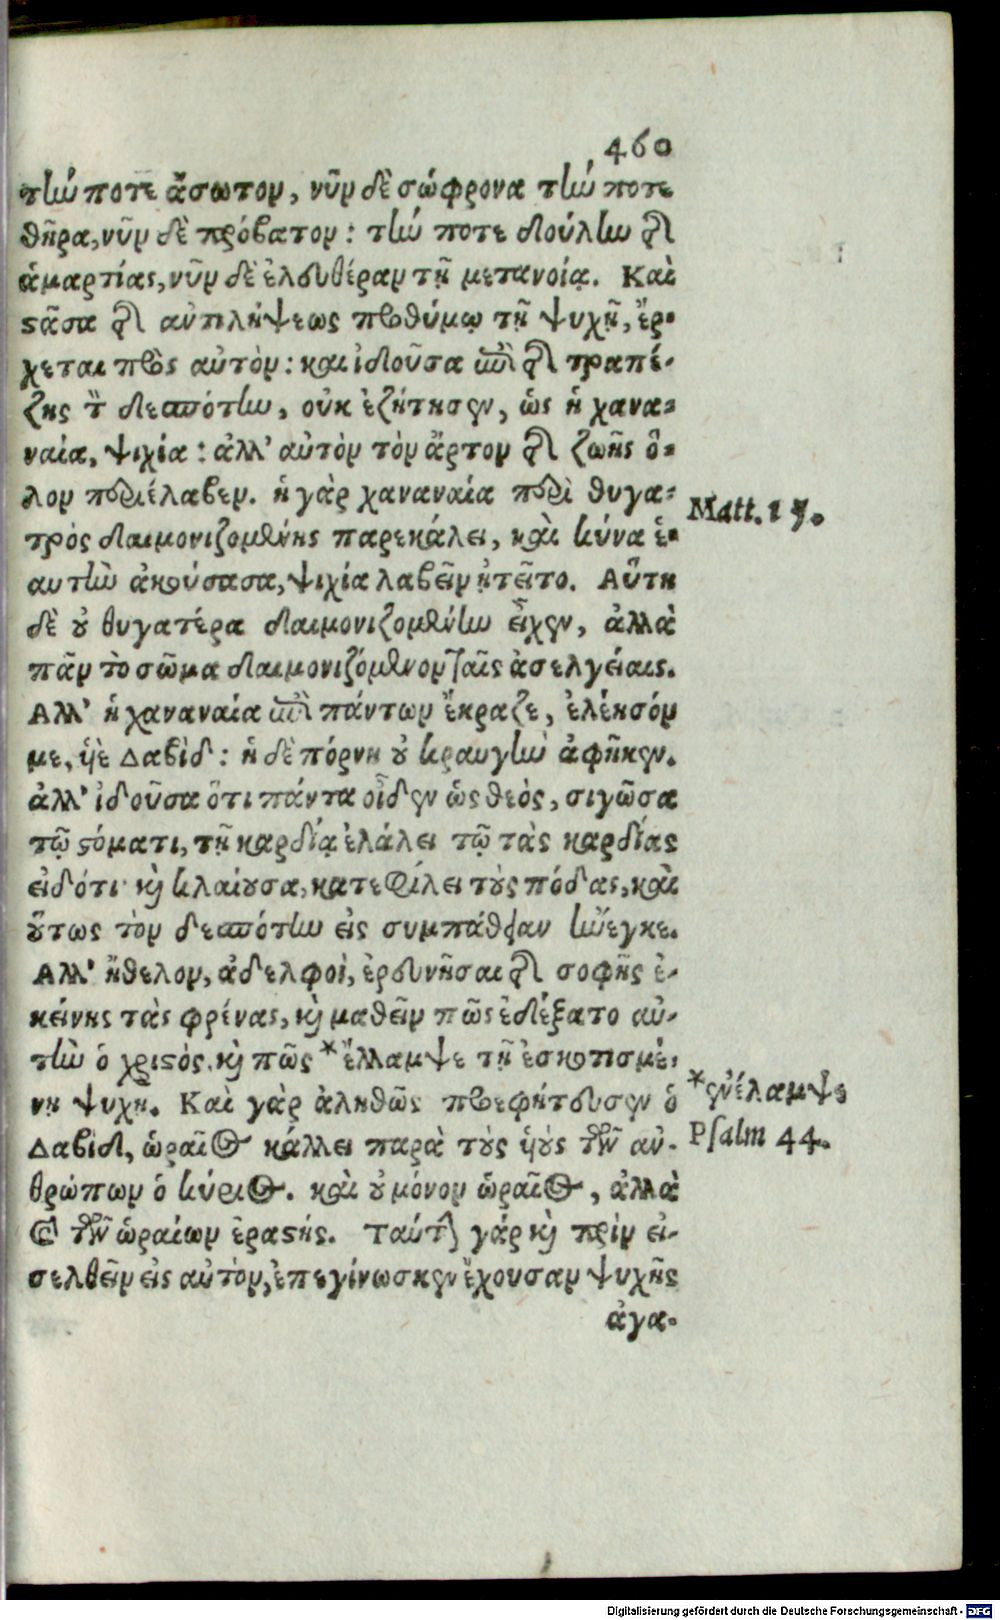 460
τήν ποτε ἄσωτον, νῦν δὲ σώφρονα τήν ποτε
θῆρα, νῦν δὲ πρόβατον: τήν ποτε δούλην τῆς
ἁμαρτίας, νῦν δὲ ἐλευθέραν τῇ μετανοίᾳ. Καὶ
στᾶσα τῆς ἀντιλήψεως προθύμῳ τῇ ψυχῇ, ἔρ-
χεται πρὸς αὐτὸν: καὶ ἰδοῦσα ἐπὶ τῆς τραπέ-
ζης τὸν δεσπότην, οὐκ ἐζήτησεν, ὡς ἡ χανα-
ναία, ψιχία: ἀλλ' αὐτὸν τὸν ἄρτον τῆς ζωῆς ὅ-
λον περιέλαβεν. ἡ γὰρ χαναναία περὶ θυγα-
τρὸς δαιμονιζομένης παρεκάλει, καὶ κύνα ἑ-
αυτὴν ἀκούσασα, ψιχία λαβεῖν ᾐτεῖτο. Αὕτη
δὲ οὐ θυγατέρα δαιμονιζομένην εἶχεν, ἀλλὰ
πᾶν τὸ σῶμα δαιμονιζόμενον ταῖς ἀσελγείαις.
Ἀλλ' ἡ χαναναία ἐπὶ πάντων ἔκραζε, ἐλέησόν
με, υἱὲ Δαβὶδ: ἡ δὲ πόρνη οὐ κραυγὴν ἀφῆκεν.
ἀλλ' ἰδοῦσα ὅτι πάντα οἶδεν ὡς θεὸς, σιγῶσα
τῷ στόματι, τῇ καρδίᾳ ἐλάλει τῷ τὰς καρδίας
εἰδότι· καὶ κλαίουσα, κατεφίλει τοὺς πόδας, καὶ
οὕτως τὸν δεσπότην εἰς συμπάθειαν ἤνεγκε.
Ἀλλ' ἤθελον, ἀδελφοὶ, ἐρευνῆσαι τῆς σοφῆς ἐ-
κείνης τὰς φρένας, καὶ μαθεῖν πῶς ἐδέξατο αὐ-
τὴν ὁ χριστός. καὶ πῶς *ἔλλαμψε τῇ ἐσκοτισμέ-
νῃ ψυχῇ. Καὶ γὰρ ἀληθῶς προεφήτευσεν ὁ
Δαβὶδ, ὡραῖος κάλλει παρὰ τοὺς υἱοὺς τῶν ἀν-
θρώπων ὁ κύριος. καὶ οὐ μόνον ὡραῖος, ἀλλὰ
καὶ τῶν ὡραίων ἐραστής. Ταύτην γάρ καὶ πρὶν εἰ-
σελθεῖν εἰς αὐτὸν, ἐπεγίνωσκεν ἔχουσαν ψυχῆς
ἀγα-
Matt. 15.
*ἐνέλαμψε
Psalm 44.
Digitalisierung gefördert durch die Deutsche Forschungsgemeinschaft - DFG